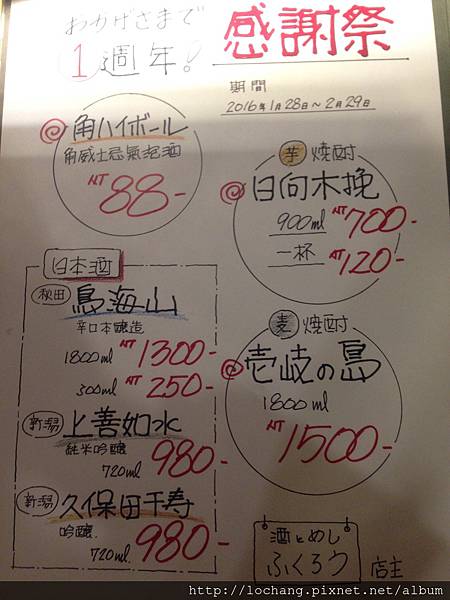 おかげさまで
1週年! 感謝祭
期間
2016年1月28日～2月29日
角ハイボール
角威士忌氣泡酒
NT 88-
芋 焼酎
日向木挽
900ml NT 700-
一杯 NT 120-
日本酒
秋田 鳥海山
辛口本醸造
1800ml NT 1300-
300ml NT 250-
新潟 上善如水
純米吟醸
720ml 980-
新潟 久保田千寿
吟醸
720ml 980-
麦 焼酎
壱岐の島
1800ml
NT 1500-
酒とめし
ふくろう 店主
http://lochang.pixnet.net/album